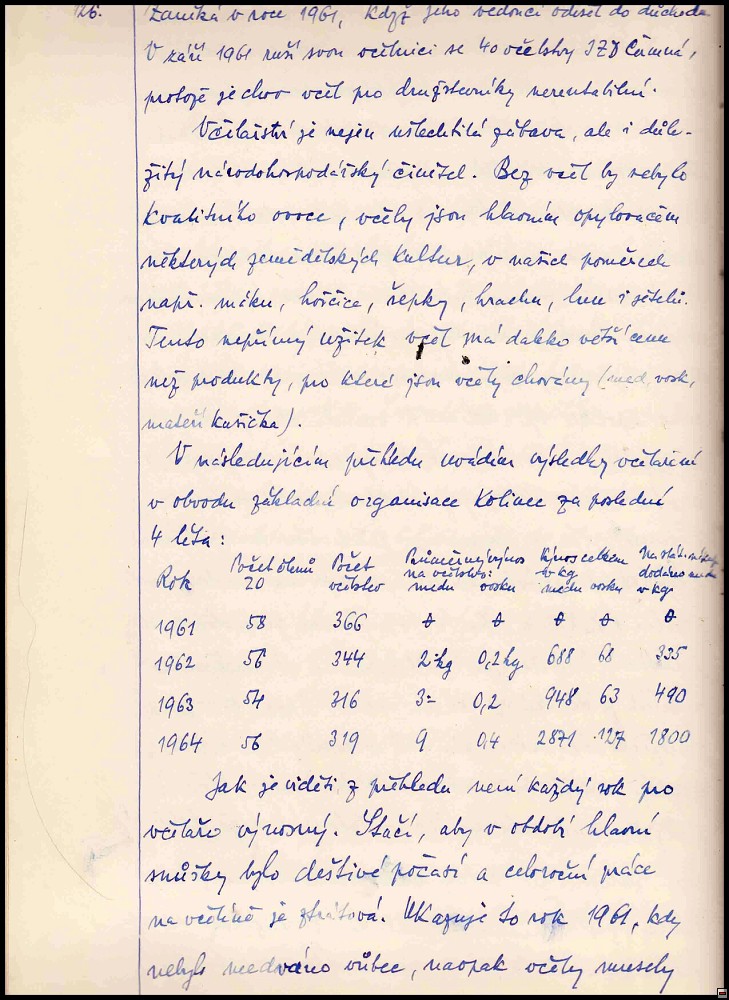 126. Zaniká v roce 1961, když jeho vedoucí odešel do důchodu
V září 1961 ruší svou včelnici se 40 včelstvy JZD Čimná,
protože je chov včel pro družstevníky nerentabilní.
Včelařství je nejen ušlechtilá zábava, ale i důle-
žitý národohospodářský činitel. Bez včel by nebylo
kvalitního ovoce, včely jsou hlavním opylovačem
některých zemědělských kultur, v našich poměrech
např. máku, hořčice, řepky, hrachu, lnu i jetelů.
Tento nepřímý užitek včel má daleko větší cenu
než produkty, pro které jsou včely chovány (med, vosk,
mateří kašička).
V následujícím přehledu uvádím výsledky včelaření
v obvodu základní organisace Kolinec za poslední
4 léta:
Rok Počet členů ZO Počet včelstev Průměrný výnos na včelstvo: medu vosku Výnos celkem v kg medu vosku Na stát. dodáno medu v kg
1961 58 366 0 0 0 0 0
1962 56 344 2 kg 0,2 kg 688 68 335
1963 54 316 3= 0,2 948 63 490
1964 56 319 9 0,4 2871 127 1800
Jak je viděti z přehledu není každý rok pro
včelaře výnosný. Stačí, aby v období hlavní
snůšky bylo deštivé počasí a celoroční práce
na včelíně je ztrátová. Ukazuje to rok 1961, kdy
nebylo medováno vůbec, naopak včely musely